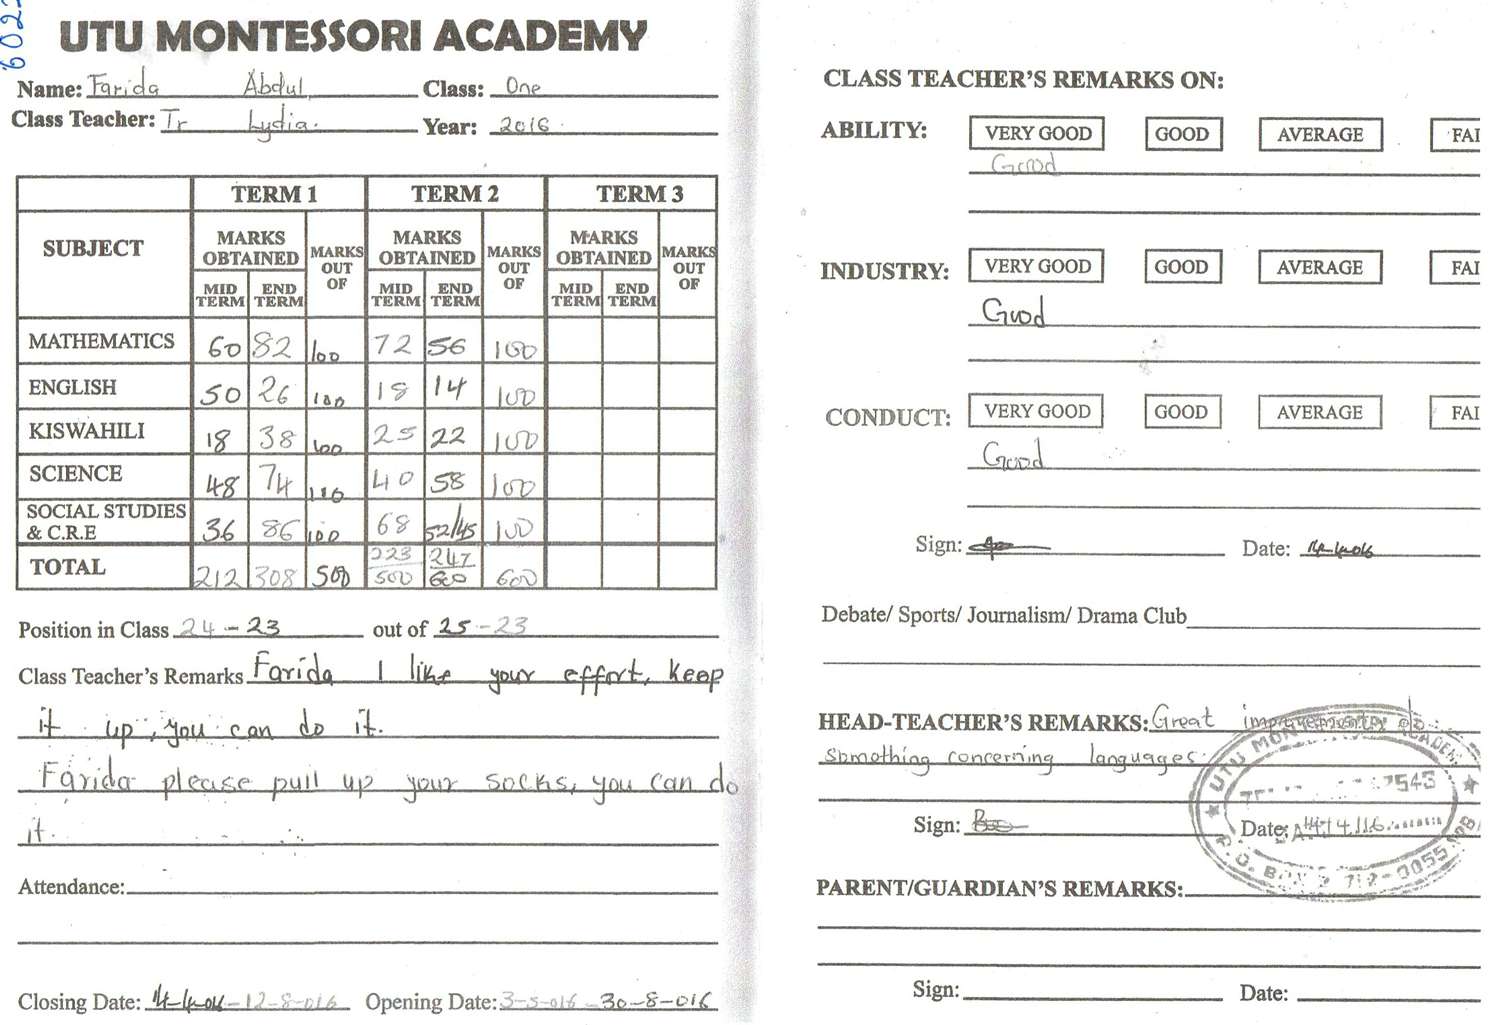 602
UTU MONTESSORI ACADEMY
Name: Farida Abdul Class: One
Class Teacher: Tr Lydia. Year: 2016
SUBJECT TERM 1 TERM 2 TERM 3
MARKS OBTAINED MARKS OUT OF MARKS OBTAINED MARKS OUT OF MARKS OBTAINED MARKS OUT OF
MID TERM END TERM MID TERM END TERM MID TERM END TERM
MATHEMATICS 60 82 100 72 56 100
ENGLISH 50 26 100 18 14 100
KISWAHILI 18 38 100 25 22 100
SCIENCE 48 74 100 40 58 100
SOCIAL STUDIES & C.R.E 36 86 100 68 52/45 100
TOTAL 212 308 500 223/500 247/600 600
Position in Class 24 - 23 out of 25 - 23
Class Teacher's Remarks Farida I like your effort, keep
it up, you can do it.
Farida please pull up your socks, you can do
it.
Attendance:
Closing Date: 14-4-016 - 12-8-016 Opening Date: 3-5-016 - 30-8-016
CLASS TEACHER'S REMARKS ON:
ABILITY: VERY GOOD GOOD AVERAGE FAI
Good
INDUSTRY: VERY GOOD GOOD AVERAGE FAI
Good
CONDUCT: VERY GOOD GOOD AVERAGE FAI
Good
Sign: Date: 14-4-016
Debate/ Sports/ Journalism/ Drama Club
HEAD-TEACHER'S REMARKS: Great improvement do
something concerning languages.
Sign: Date: 14/4/16
UTU MONTESSORI ACADEMY
P.O. BOX
PARENT/GUARDIAN'S REMARKS:
Sign: Date: